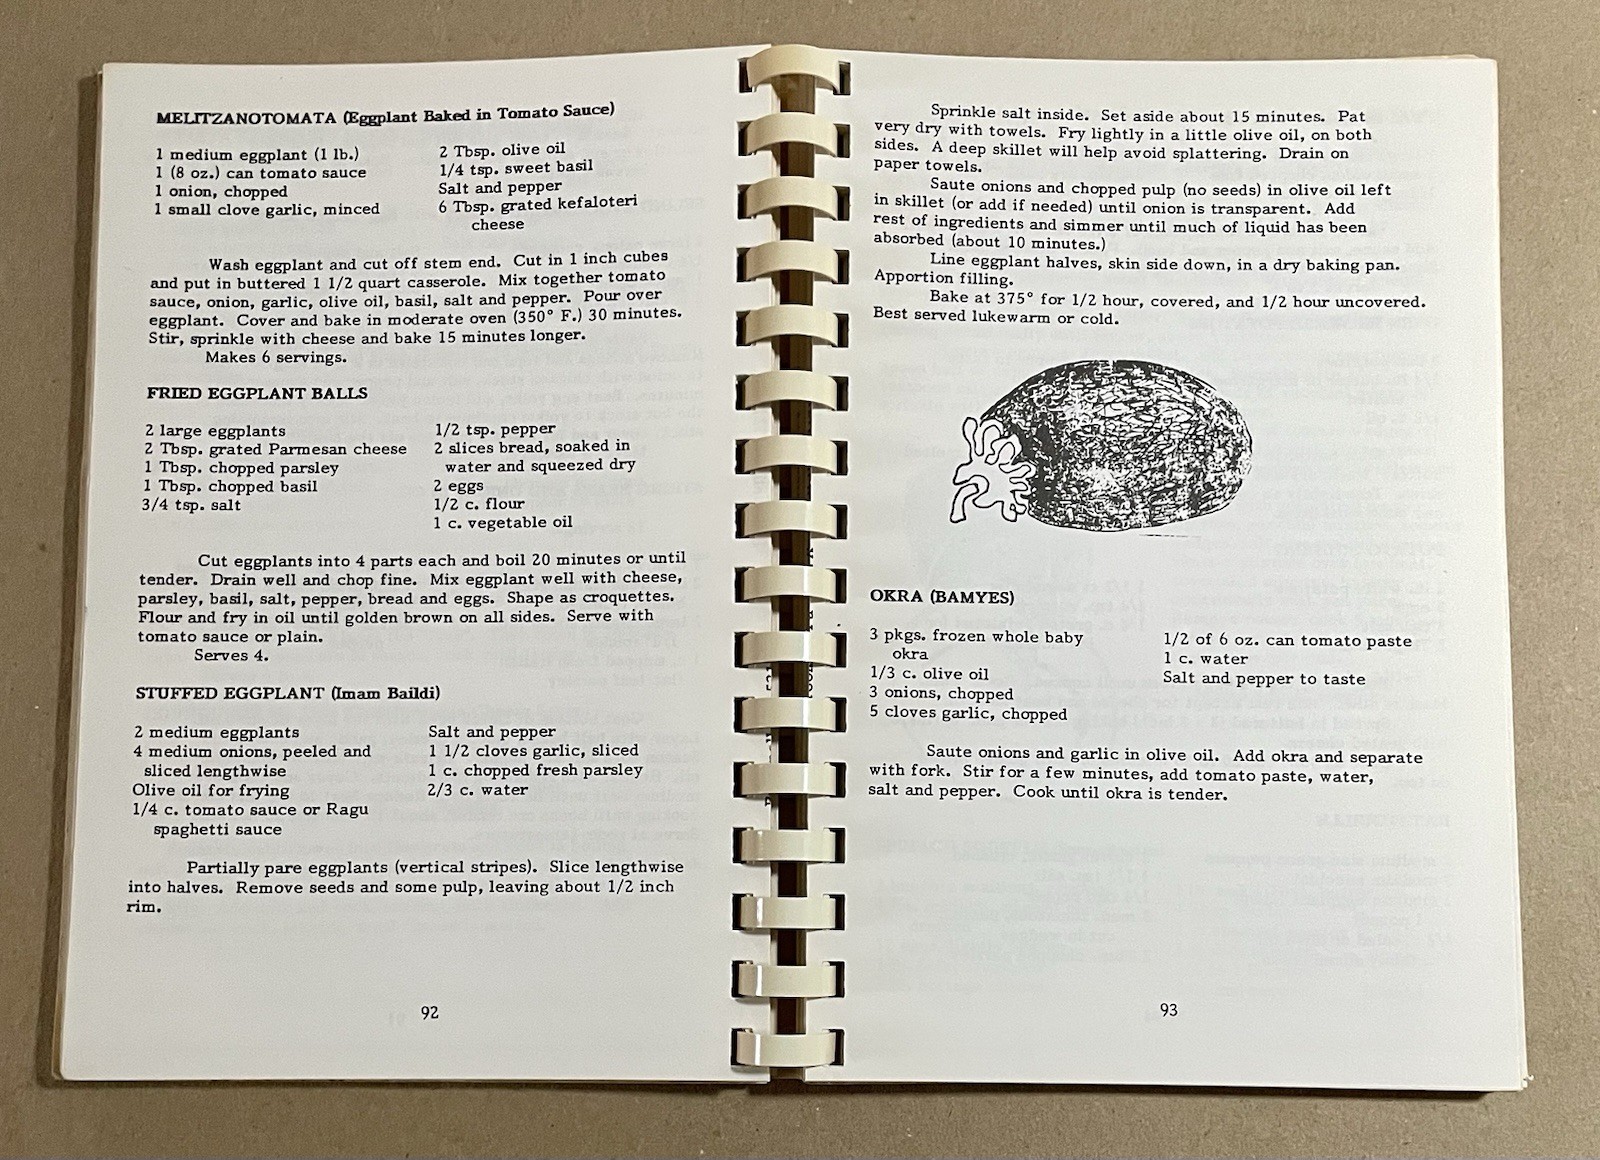 MELITZANOTOMATA (Eggplant Baked in Tomato Sauce)
1 medium eggplant (1 lb.)
1 (8 oz.) can tomato sauce
1 onion, chopped
1 small clove garlic, minced
2 Tbsp. olive oil
1/4 tsp. sweet basil
Salt and pepper
6 Tbsp. grated kefaloteri
cheese
Wash eggplant and cut off stem end. Cut in 1 inch cubes
and put in buttered 1 1/2 quart casserole. Mix together tomato
sauce, onion, garlic, olive oil, basil, salt and pepper. Pour over
eggplant. Cover and bake in moderate oven (350° F.) 30 minutes.
Stir, sprinkle with cheese and bake 15 minutes longer.
Makes 6 servings.
FRIED EGGPLANT BALLS
2 large eggplants
2 Tbsp. grated Parmesan cheese
1 Tbsp. chopped parsley
1 Tbsp. chopped basil
3/4 tsp. salt
1/2 tsp. pepper
2 slices bread, soaked in
water and squeezed dry
2 eggs
1/2 c. flour
1 c. vegetable oil
Cut eggplants into 4 parts each and boil 20 minutes or until
tender. Drain well and chop fine. Mix eggplant well with cheese,
parsley, basil, salt, pepper, bread and eggs. Shape as croquettes.
Flour and fry in oil until golden brown on all sides. Serve with
tomato sauce or plain.
Serves 4.
STUFFED EGGPLANT (Imam Baildi)
2 medium eggplants
4 medium onions, peeled and
sliced lengthwise
Olive oil for frying
1/4 c. tomato sauce or Ragu
spaghetti sauce
Salt and pepper
1 1/2 cloves garlic, sliced
1 c. chopped fresh parsley
2/3 c. water
Partially pare eggplants (vertical stripes). Slice lengthwise
into halves. Remove seeds and some pulp, leaving about 1/2 inch
rim.
92
Sprinkle salt inside. Set aside about 15 minutes. Pat
very dry with towels. Fry lightly in a little olive oil, on both
sides. A deep skillet will help avoid splattering. Drain on
paper towels.
Saute onions and chopped pulp (no seeds) in olive oil left
in skillet (or add if needed) until onion is transparent. Add
rest of ingredients and simmer until much of liquid has been
absorbed (about 10 minutes.)
Line eggplant halves, skin side down, in a dry baking pan.
Apportion filling.
Bake at 375° for 1/2 hour, covered, and 1/2 hour uncovered.
Best served lukewarm or cold.
OKRA (BAMYES)
3 pkgs. frozen whole baby
okra
1/3 c. olive oil
3 onions, chopped
5 cloves garlic, chopped
1/2 of 6 oz. can tomato paste
1 c. water
Salt and pepper to taste
Saute onions and garlic in olive oil. Add okra and separate
with fork. Stir for a few minutes, add tomato paste, water,
salt and pepper. Cook until okra is tender.
93